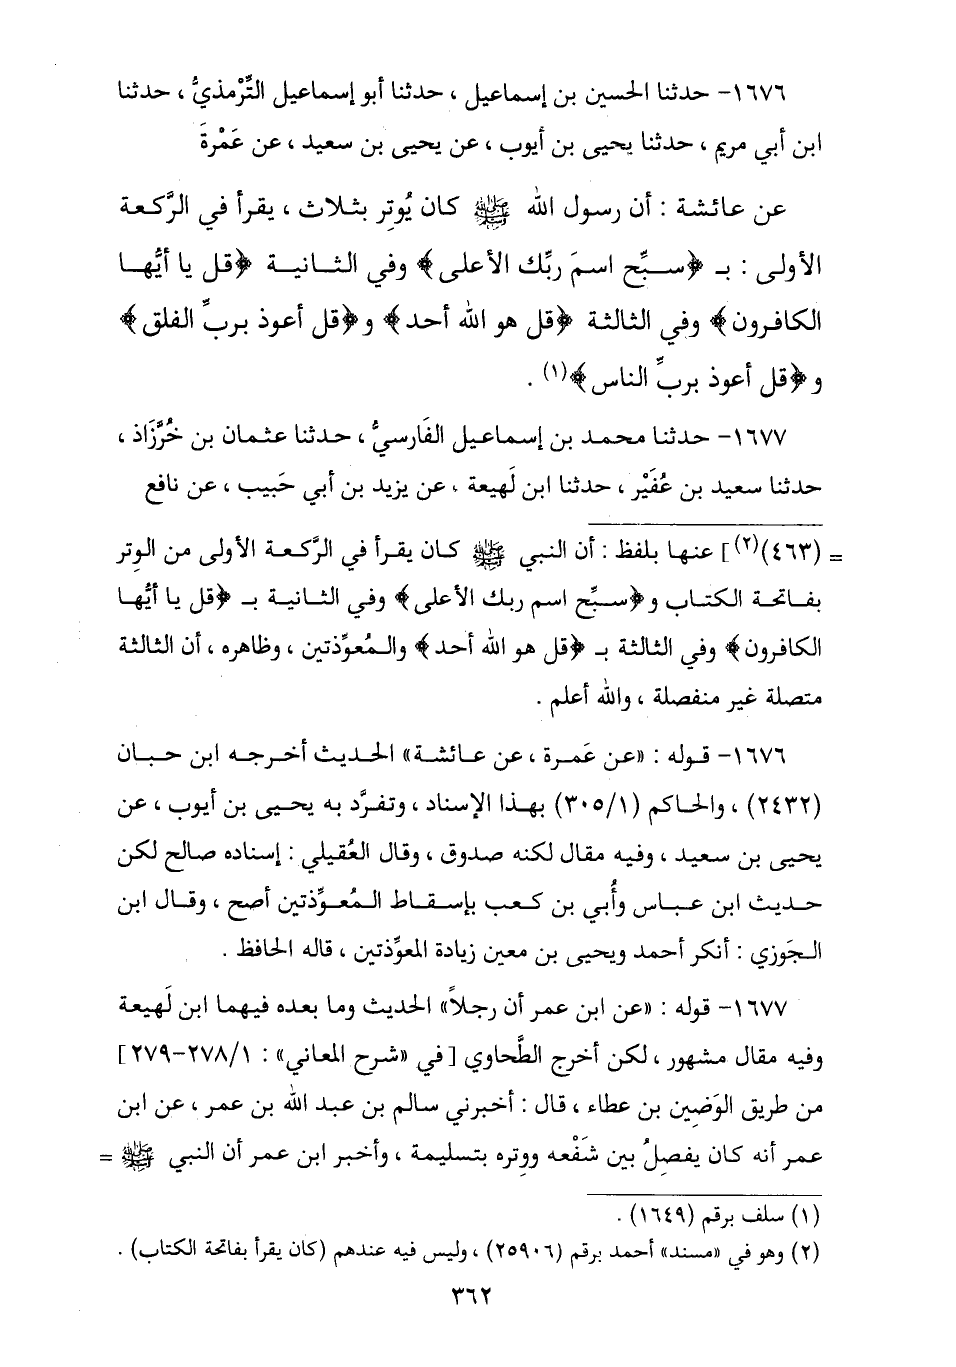 ١٦٧٦- حدثنا الحسين بن إسماعيل ، حدثنا أبو إسماعيل التِّرْمذيُّ ، حدثنا
ابن أبي مريم ، حدثنا يحيى بن أيوب ، عن يحيى بن سعيد ، عن عَمْرةَ
عن عائشة : أن رسول الله ﷺ كان يُوتِر بثلاث ، يقرأ في الرَّكعة
الأولى : بـ ﴿سبِّح اسمَ ربِّك الأعلى﴾ وفي الثانية ﴿قل يا أيُّها
الكافرون﴾ وفي الثالثة ﴿قل هو الله أحد﴾ و﴿قل أعوذ بربِّ الفلق﴾
و﴿قل أعوذ بربِّ الناس﴾(١) .
١٦٧٧- حدثنا محمد بن إسماعيل الفَارسيُّ ، حدثنا عثمان بن خُرَّزَاذ ،
حدثنا سعيد بن عُفَيْر ، حدثنا ابن لَهيعة ، عن يزيد بن أبي حَبيب ، عن نافع
= (٤٦٣)(٢)] عنها بلفظ : أن النبي ﷺ كان يقرأ في الرَّكعة الأولى من الوتر
بفاتحة الكتاب و﴿سبِّح اسم ربك الأعلى﴾ وفي الثانية بـ ﴿قل يا أيُّها
الكافرون﴾ وفي الثالثة بـ ﴿قل هو الله أحد﴾ والمُعوِّذتين ، وظاهره ، أن الثالثة
متصلة غير منفصلة ، والله أعلم .
١٦٧٦- قوله : «عن عَمرة ، عن عائشة» الحديث أخرجه ابن حبان
(٢٤٣٢) ، والحاكم (٣٠٥/١) بهذا الإسناد ، وتفرَّد به يحيى بن أيوب ، عن
يحيى بن سعيد ، وفيه مقال لكنه صدوق ، وقال العُقيلي : إسناده صالح لكن
حديث ابن عباس وأُبي بن كعب بإسقاط المُعوِّذتين أصح ، وقال ابن
الجَوزي : أنكر أحمد ويحيى بن معين زيادة المعوِّذتين ، قاله الحافظ .
١٦٧٧- قوله : «عن ابن عمر أن رجلاً» الحديث وما بعده فيهما ابن لَهيعة
وفيه مقال مشهور ، لكن أخرج الطَّحاوي [في «شرح المعاني» : ٢٧٨/١-٢٧٩]
من طريق الوَضِين بن عطاء ، قال : أخبرني سالم بن عبد الله بن عمر ، عن ابن
عمر أنه كان يفصِلُ بين شَفْعه ووتِره بتسليمة ، وأخبر ابن عمر أن النبي ﷺ =
(١) سلف برقم (١٦٤٩) .
(٢) وهو في «مسند» أحمد برقم (٢٥٩٠٦) ، وليس فيه عندهم (كان يقرأ بفاتحة الكتاب) .
٣٦٢